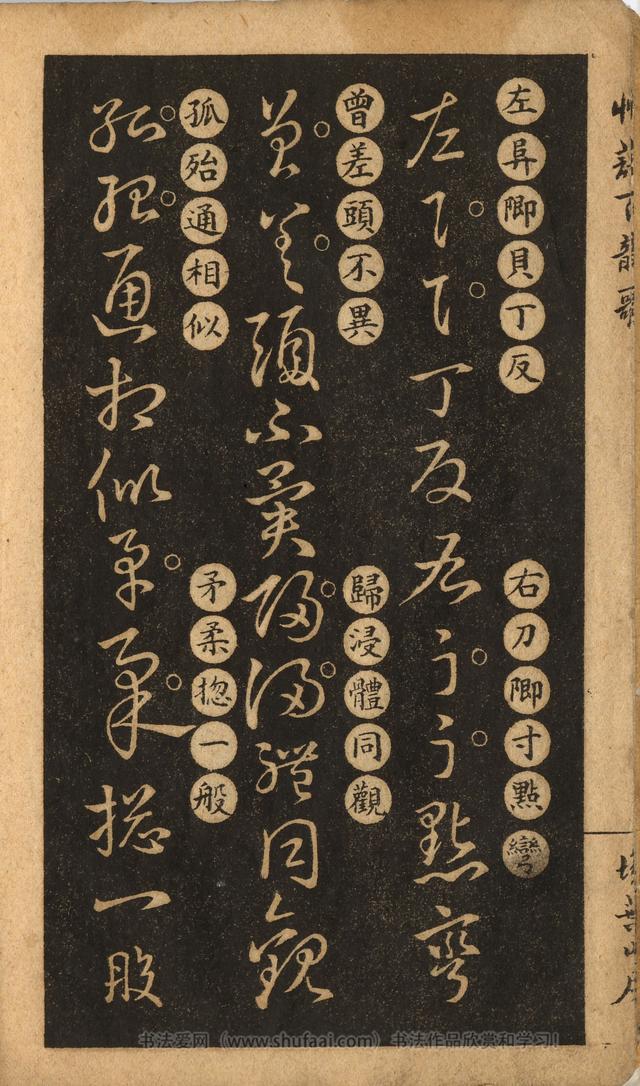 艸訣百韻歌
埽葉山房
左阜卿貝丁反
右刀卿寸點彎
左阝貝丁反右刀寸點彎
曾差頭不異
歸浸體同觀
曾差頭不異歸浸體同觀
孤殆通相似
矛柔揔一般
孤殆通相似矛柔揔一般
书法爱网（www.shufaai.com）书法作品欣赏和学习！